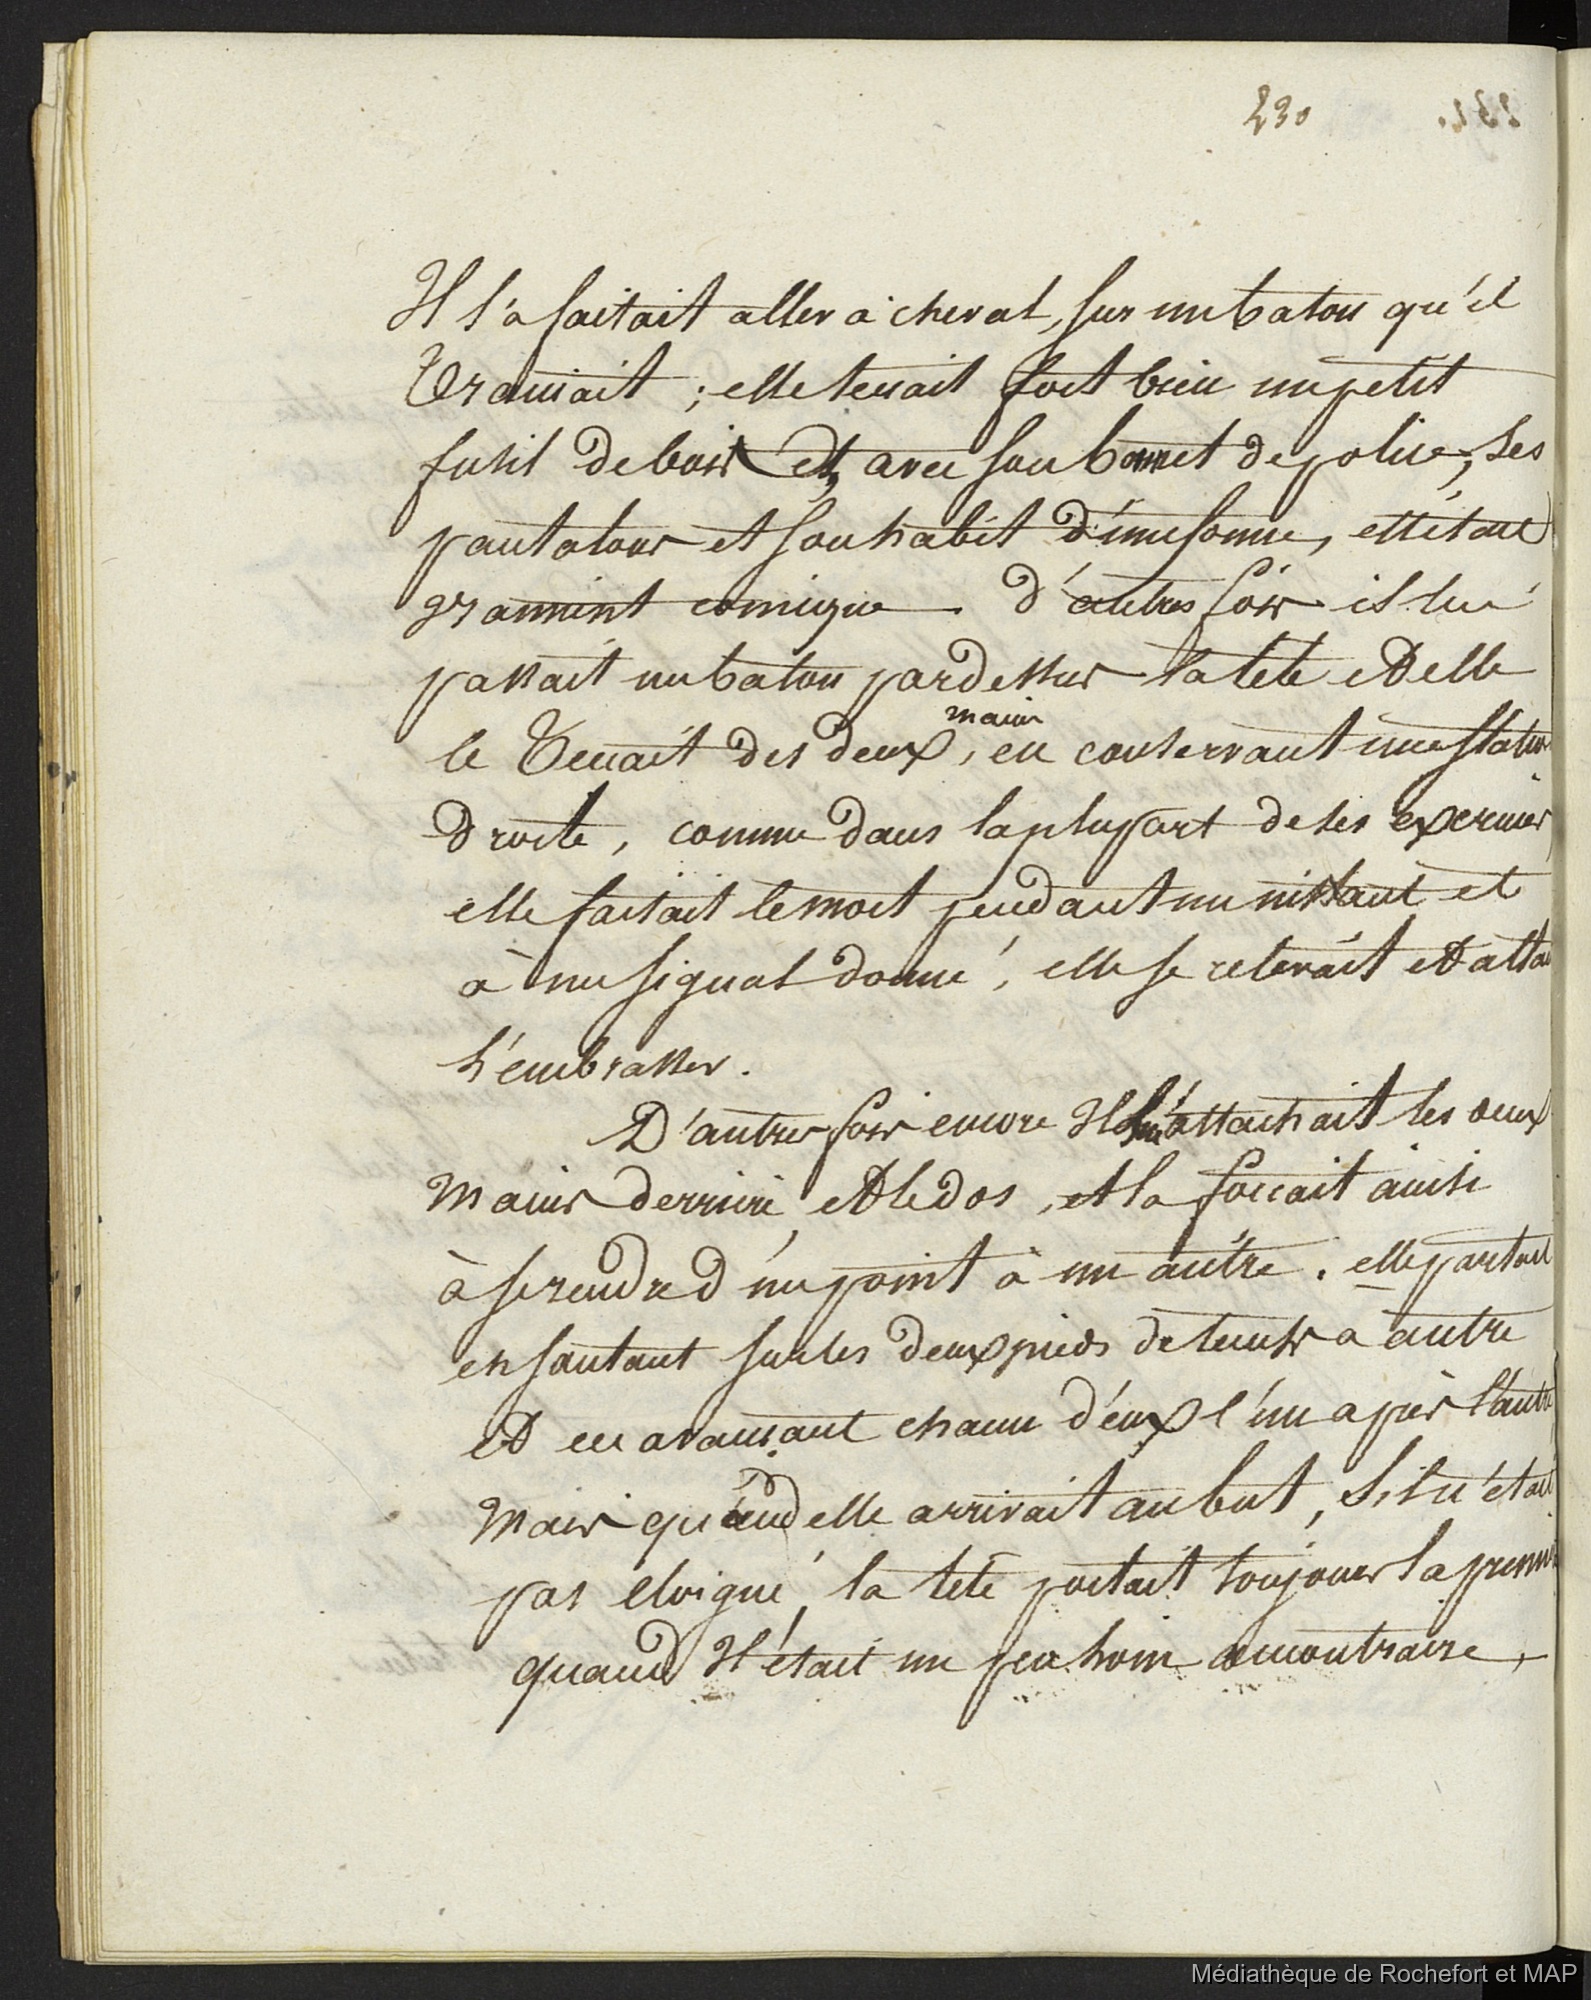 230
Il l'a faisait aller à cheval, sur un baton qu'il
trainait ; elle tenait fort bien un petit
fusil de bois et, avec son bonnet de police, ses
pantalons et son habit d'uniforme, elle était
vraiment comique. D'autres fois il lui
passait un baton pardessus la tete et elle
le tenait des deux mains, en conservant une stature
droite, comme dans la plupart de ses exercices
elle faisait le mort pendant un instant et
à un signal donné, elle se relevait et allait
l'embrasser.
D'autres fois encore Il lui attachait les deux
mains derrière le dos, et la forcait ainsi
à se rendre d'un point à un autre. elle partait
en sautant sur les deux pieds de tems a autre
et en avançant chacun d'eux l'un après l'autre
mais quand elle arrivait au but, s'il n'était
pas eloigné, la tete partait toujours la premiere
quand Il était un peu loin au contraire,
Médiathèque de Rochefort et MAP